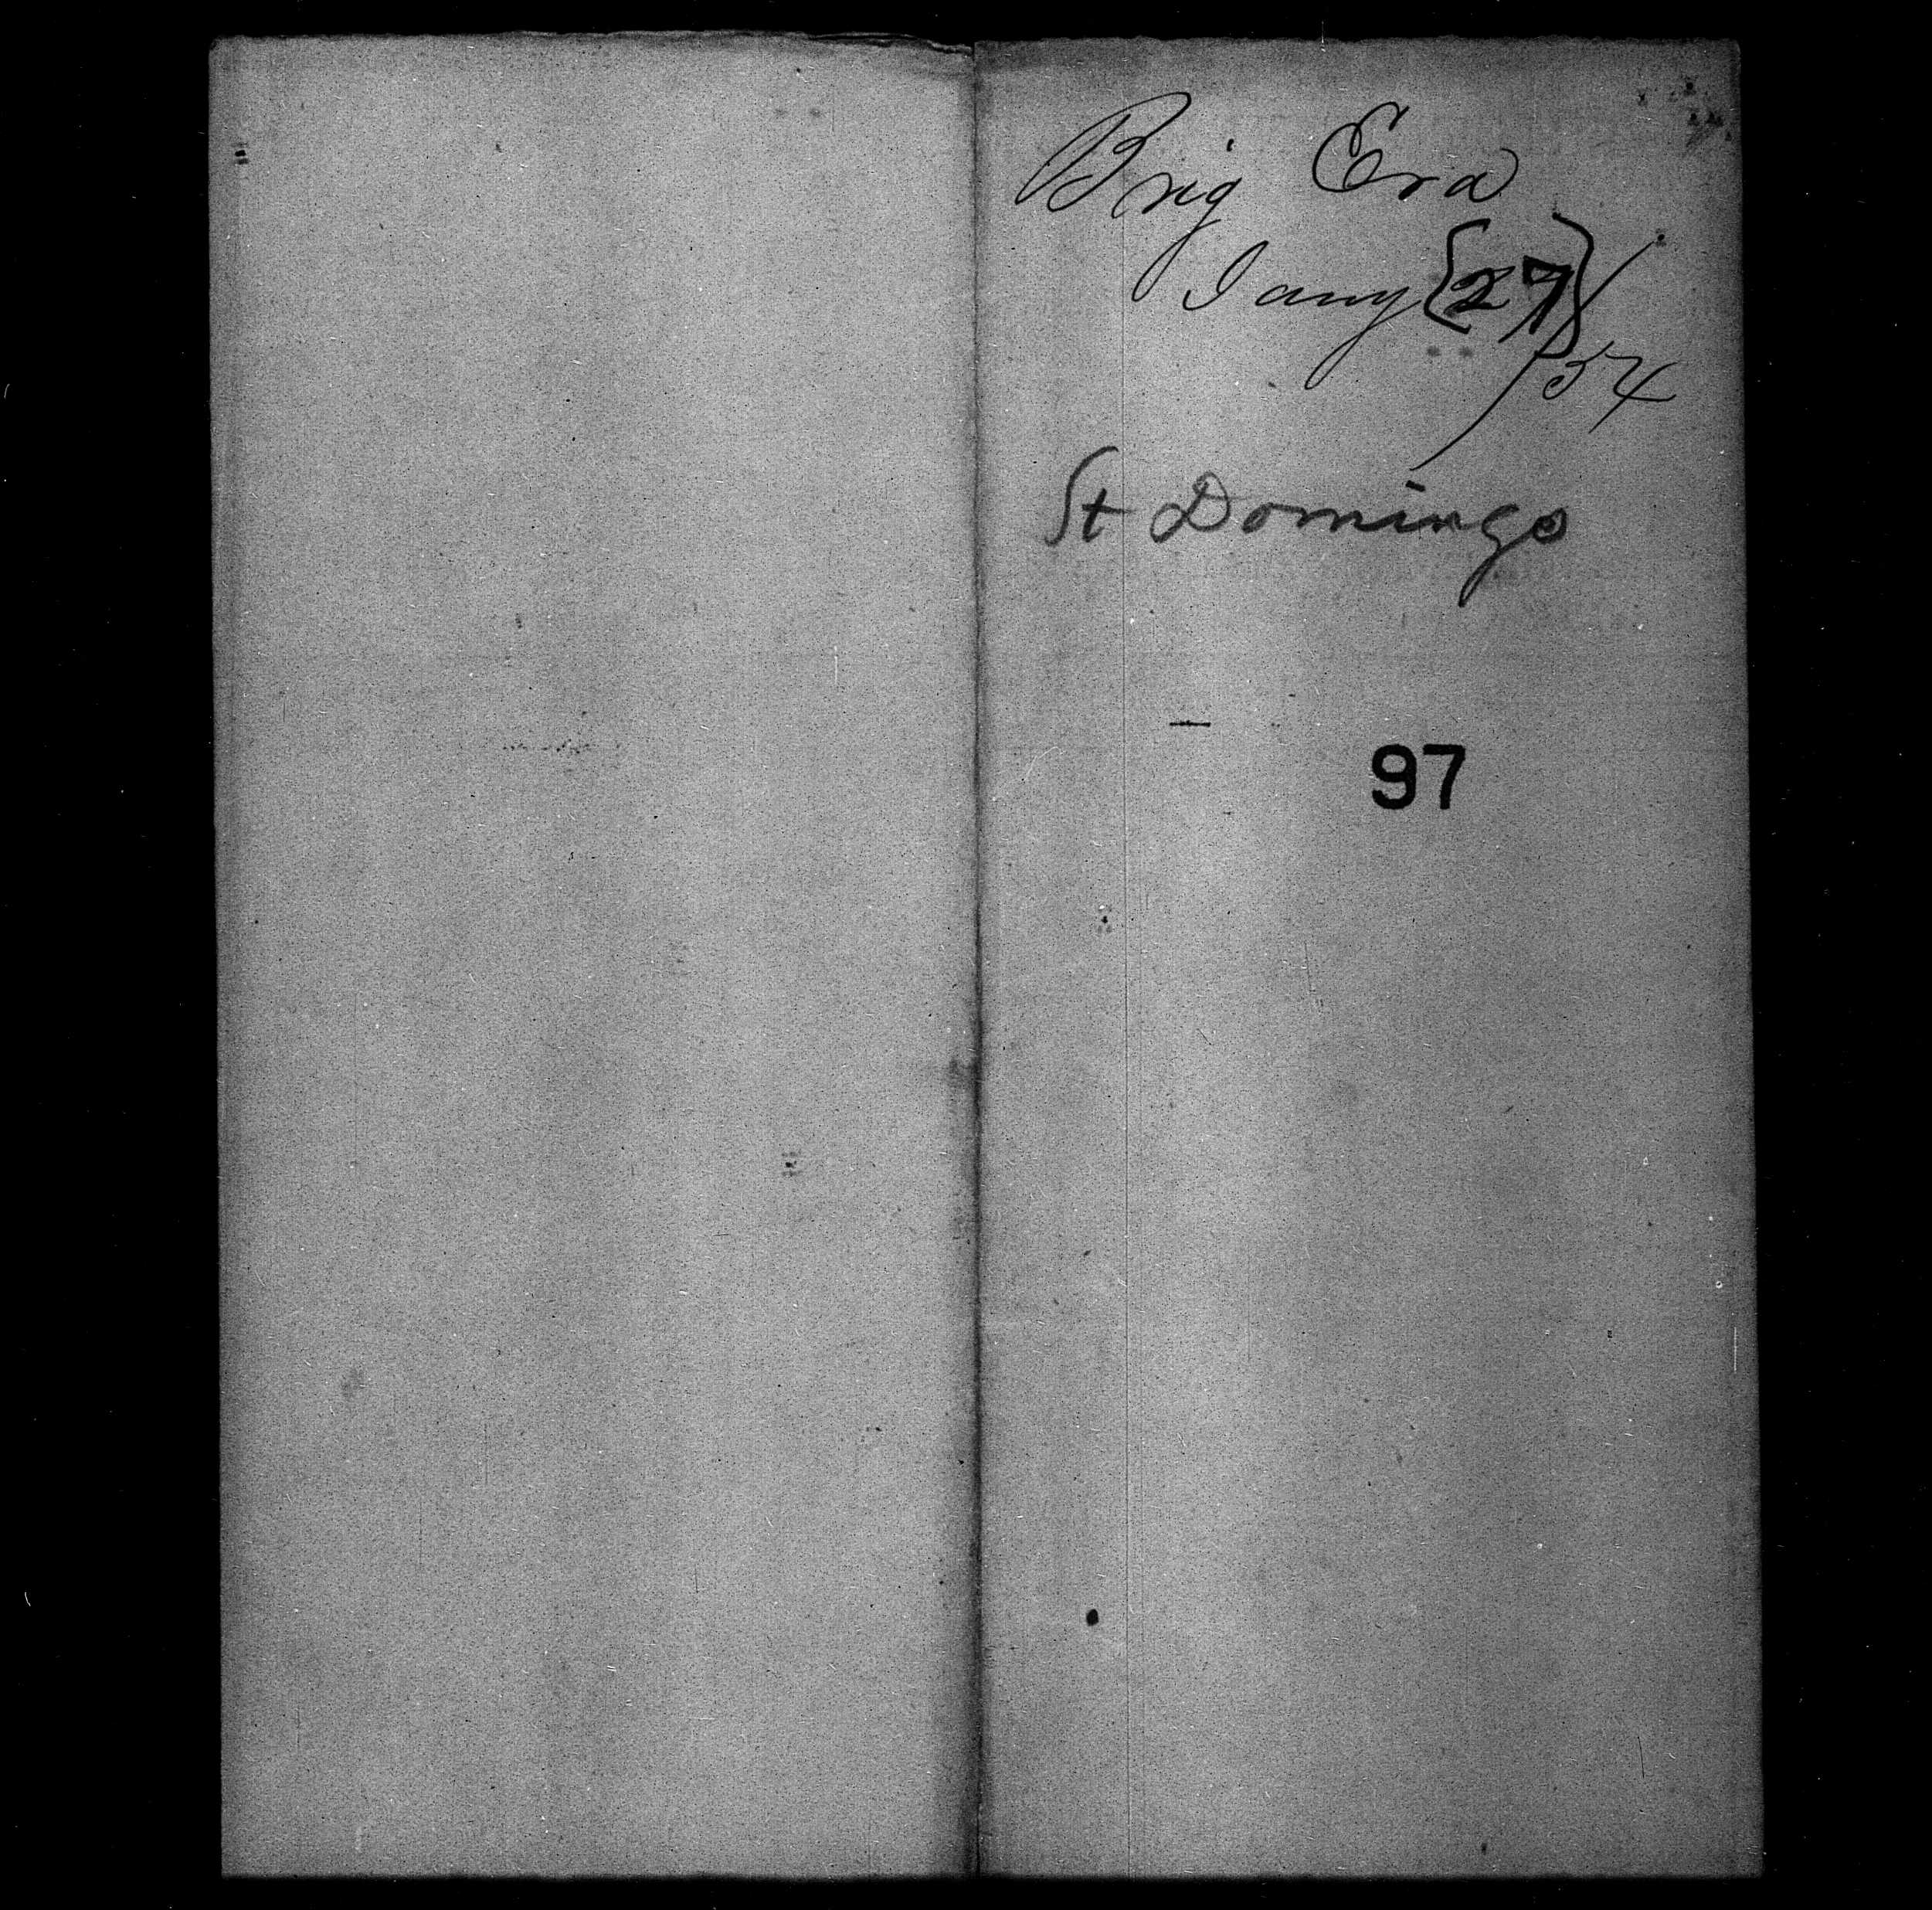 Brig Era
Jany {27}
/54
St Domingo
97